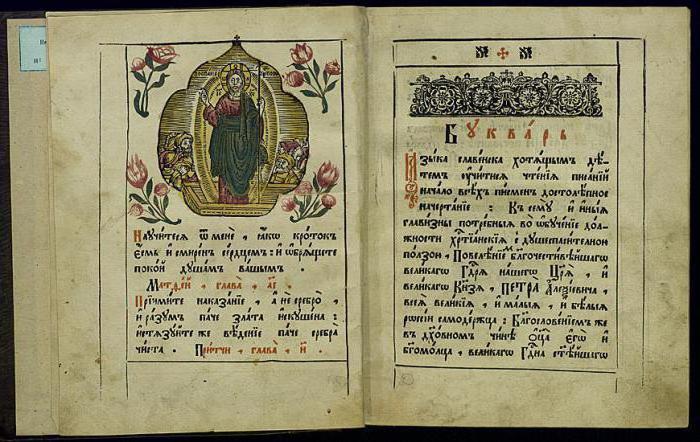 Научитеся ѿ мене, ꙗкѡ кротокъ
есмь и смиренъ сердцемъ: и ѡбрящете
покой душамъ вашымъ.
Матѳей, глава, аі.
Прїимите наказанїе, а не сребро,
и разумъ паче злата искушена:
истязуйте же вѣденїе паче сребра
чиста. Притчи, глава, и.
Букварь
Ꙗзыка славенска хотящымъ дѣ-
темъ учитися чтенїя писанїй
начало всѣхъ писменъ достолѣпное
начертанїе: Къ сему и иныя
главизны потребныя во ѡбученїе до-
лжности хрⷭ҇тїанскїя с душеспасителною
ползою, Повелѣнїемъ благочестивѣйшаго
великаго Гдⷭ҇ря нашего Цр҃я, и
великаго Кнѧзя, ПЕТРА Алеѯїевича,
всея великїя, и малыя, и бѣлыя
рѡссїи самодержца: Благословенїемъ же
в дх҃овномъ чинѣ Оц҃а Егѡ и
бг҃омолца, великаго Гдⷭ҇на ст҃ѣйшаго